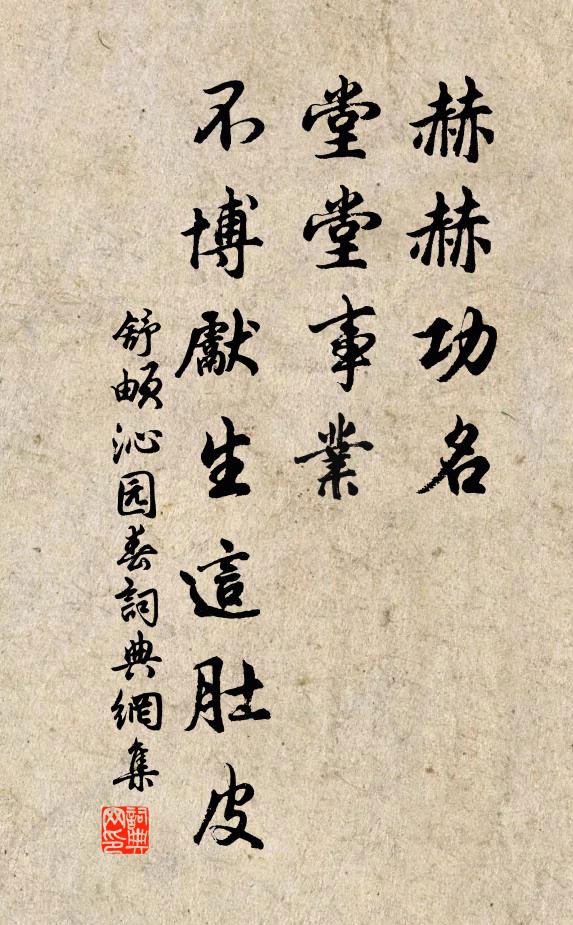 赫赫功名
堂堂事業
不博獻生這肚皮
舒頔沁园春詞典網集
詞典网印